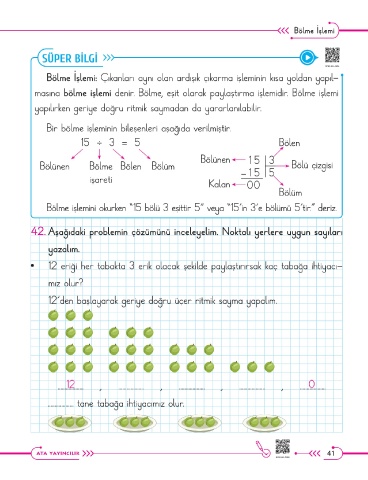 Bölme İşlemi
SÜPER BİLGİ
Bölme İşlemi: Çıkanları aynı olan ardışık çıkarma işleminin kısa yoldan yapıl-
masına bölme işlemi denir. Bölme, eşit olarak paylaştırma işlemidir. Bölme işlemi
yapılırken geriye doğru ritmik saymadan da yararlanılabilir.
Bir bölme işleminin bileşenleri aşağıda verilmiştir.
15 ÷ 3 = 5
Bölünen Bölme işareti Bölen Bölüm
Bölen
Bölünen 15 3 Bölü çizgisi
- 15 5
Kalan 00
Bölüm
Bölme işlemini okurken "15 bölü 3 eşittir 5" veya "15'in 3'e bölümü 5'tir" deriz.
42. Aşağıdaki problemin çözümünü inceleyelim. Noktalı yerlere uygun sayıları
yazalım.
• 12 eriği her tabakta 3 erik olacak şekilde paylaştırırsak kaç tabağa ihtiyacı-
mız olur?
12'den başlayarak geriye doğru üçer ritmik sayma yapalım.
12 , ............ , ............ , ............ , 0
............ tane tabağa ihtiyacımız olur.
ATA YAYINCILIK
41